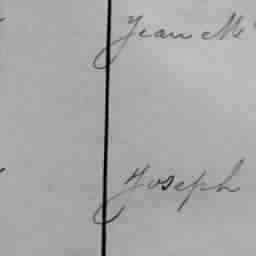 Jean Mc
Joseph